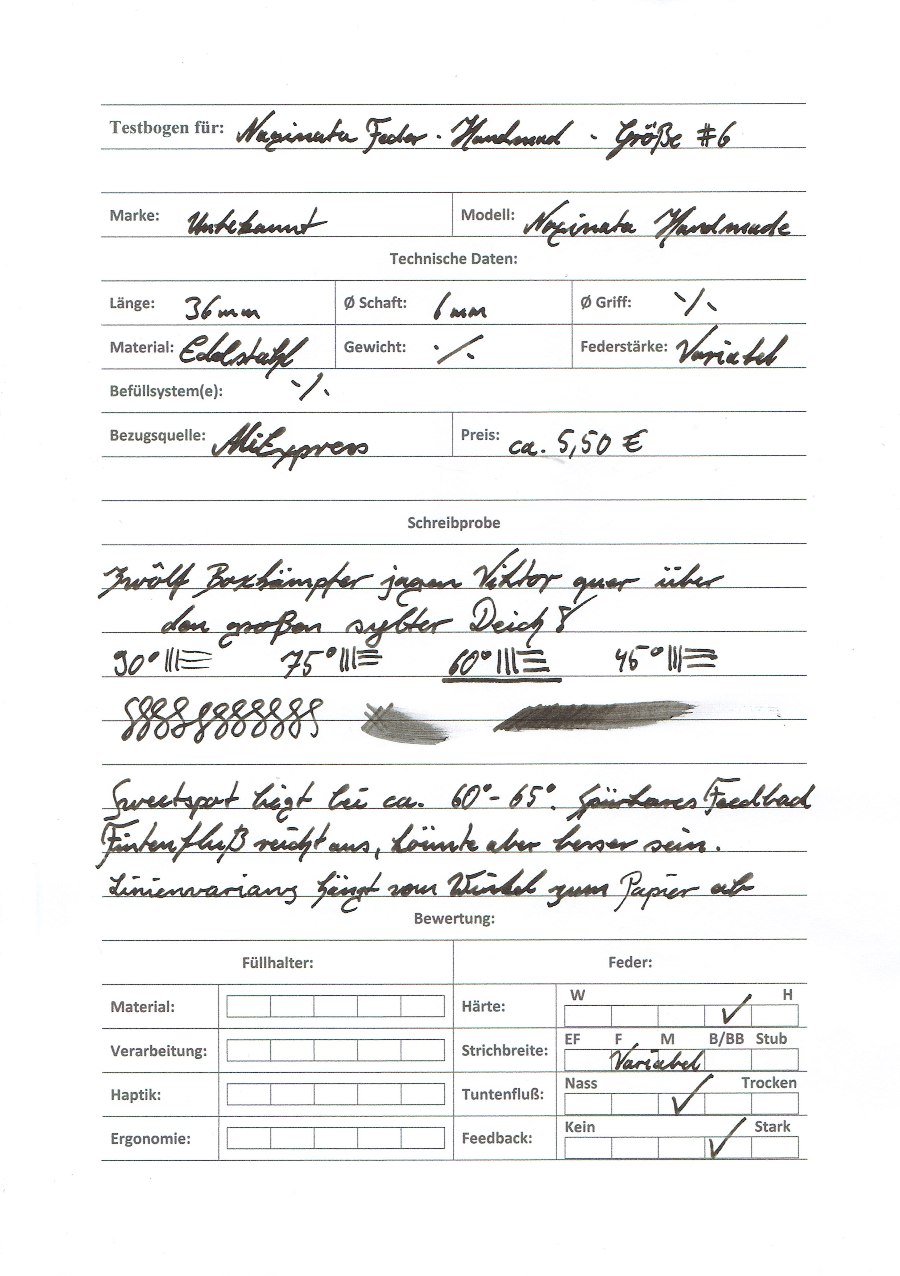 Testbogen für: Naginata Feder - Handmad - Größe #6
Marke: Unbekannt Modell: Naginata Handmade
Technische Daten:
Länge: 36mm Ø Schaft: 6mm Ø Griff: -/-
Material: Edelstahl Gewicht: -/- Federstärke: Variabel
Befüllsystem(e): -/-
Bezugsquelle: AliExpress Preis: ca. 5,50 €
Schreibprobe
Zwölf Boxkämpfer jagen Viktor quer über
den großen sylter Deich!
90° 75° 60° 45°
Sweetspot liegt bei ca. 60°- 65°. Spürbares Feedback
Tintenfluß reicht aus, könnte aber besser sein.
Linienvarianz hängt vom Winkel zum Papier ab
Bewertung:
Füllhalter: Feder:
Material: Härte: W H
Verarbeitung: Strichbreite: EF F M B/BB Stub
Variabel
Haptik: Tuntenfluß: Nass Trocken
Ergonomie: Feedback: Kein Stark